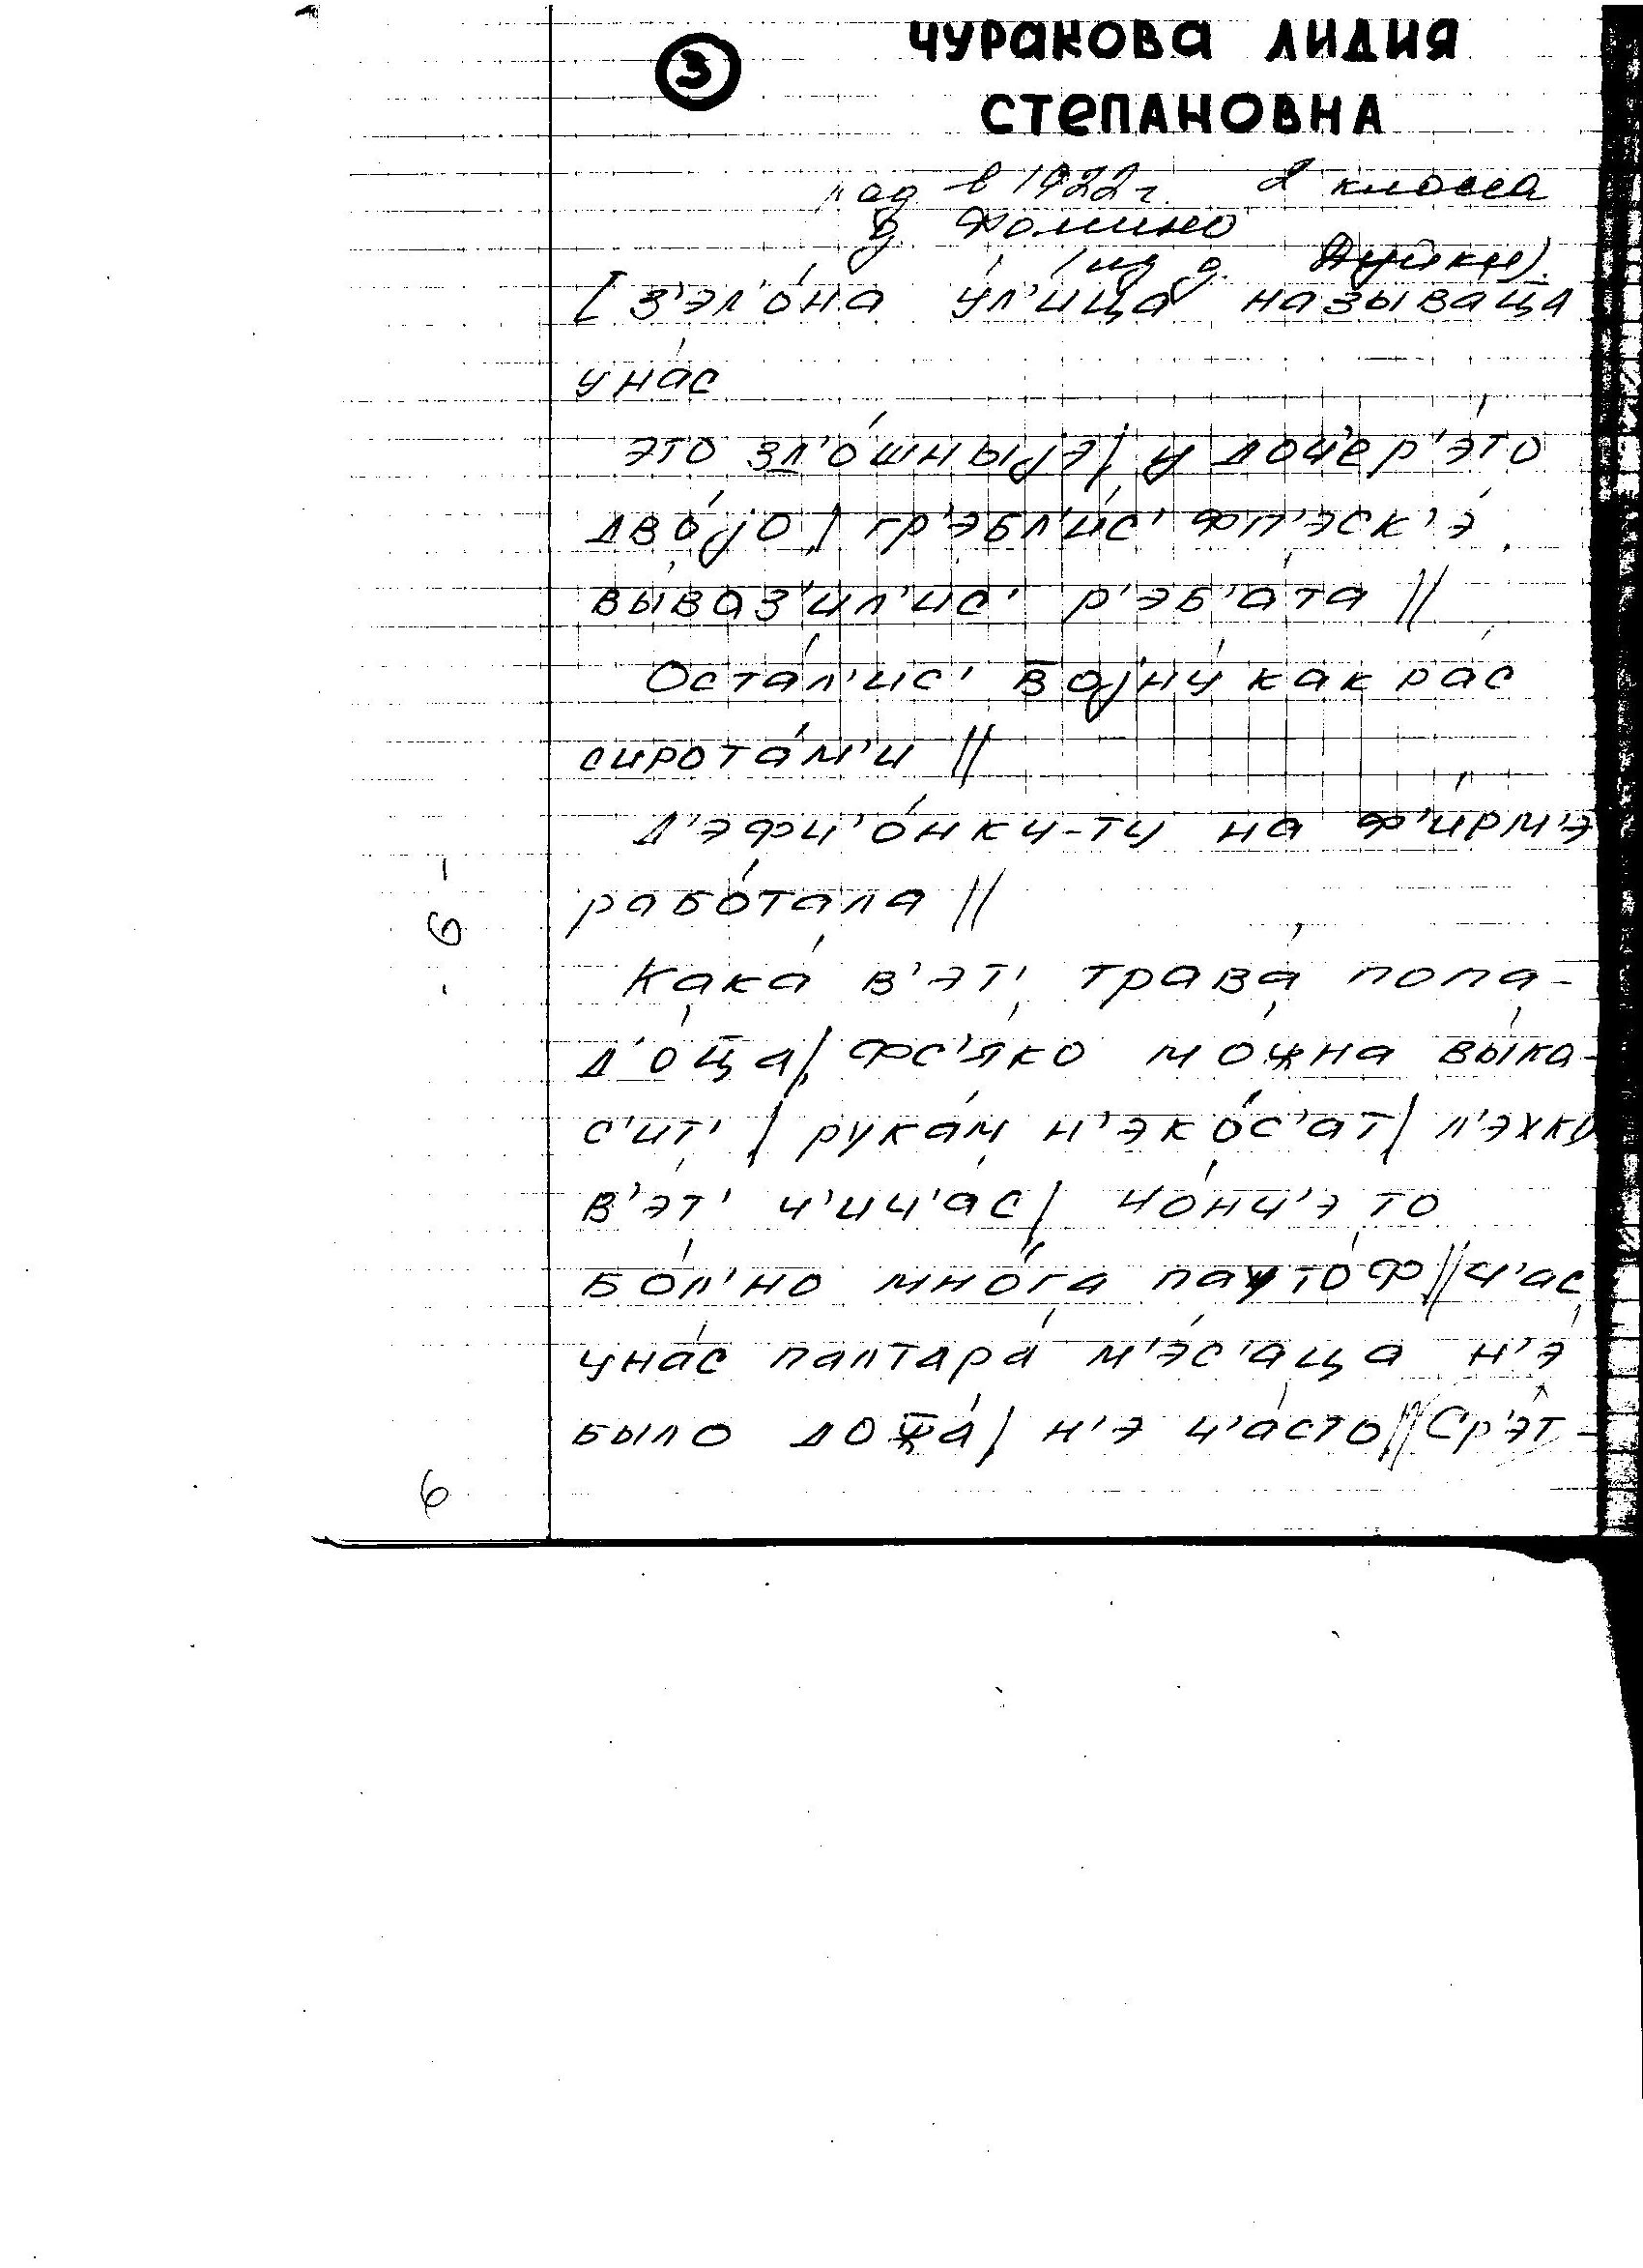 ③ ЧУРАКОВА ЛИДИЯ
СТЕПАНОВНА
в 1922 г. 2 класса
д. Фомино
(из д. ).
[з'эл'о́на у́л'ица называ́ца
уна́с
это зл'о́шныjэ| а доч'ер'э́то
дво́jо| гр'эбл'и́с' фп'эск'э́
вы́ваз'ил'ис' р'эб'а́та ||
Оста́л'ис' в̄оjну́ как ра́с
сирота́м'и ||
Д'эфч'о́нку-ту на ф'и́рм'э
рабо́тала ||
Кака́ в'эт' трава́ попа-
д'о́ц̄а| фс'я́ко мо́жна вы́ка-
с'ит' | рука́м н'эко́с'ат| л'эхко
в'э́т' ч'ич'а́с| но́нч'э то
бо́л'но мно́га пауто́ф || ч'ас
уна́с палтара́ м'э́с'аца н'э́
было дож̄а́| н'э ч'а́сто || Ср'эт-
- 6 -
6